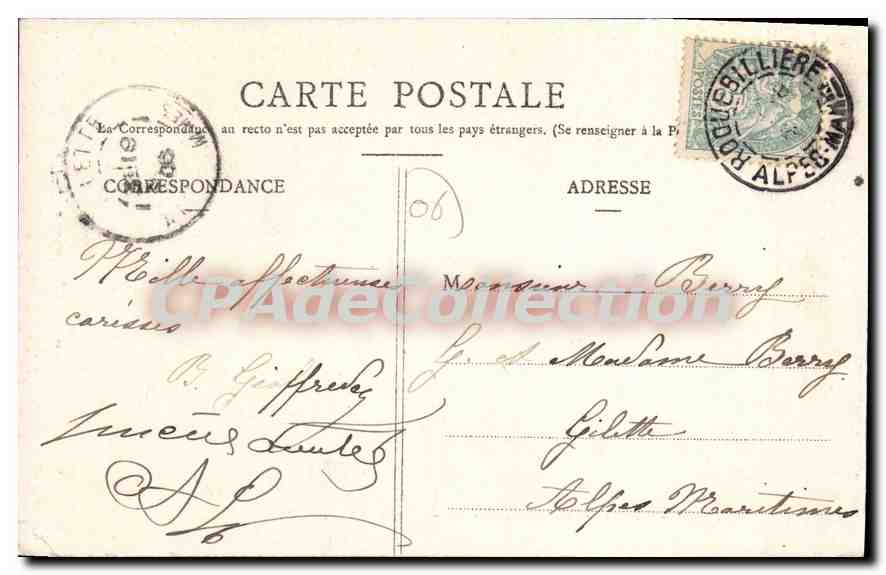 CARTE POSTALE
La Correspondance au recto n'est pas acceptée par tous les pays étrangers. (Se renseigner à la
CORRESPONDANCE
ADRESSE
POSTES
ROQUEBILLIÈRE
ALPES-MAR
06
Mille affectueuses
caresses
B. Gioffredy
Monsieur Berry
G. et Madame Berry
Gilette
Alpes Maritimes
CPAdeCollection